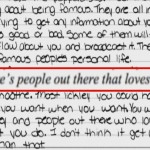 y about being famous. They are all n
ying to get any information about yo
e good or bad. Some of them will
flaw about you and broadcast it. The
famous peoples personal life.
e's people out there that loves
smoothie. Most likley you could no
you want when you want. You w
ney and people out there who lo
t you do. I don't think it get a
han that